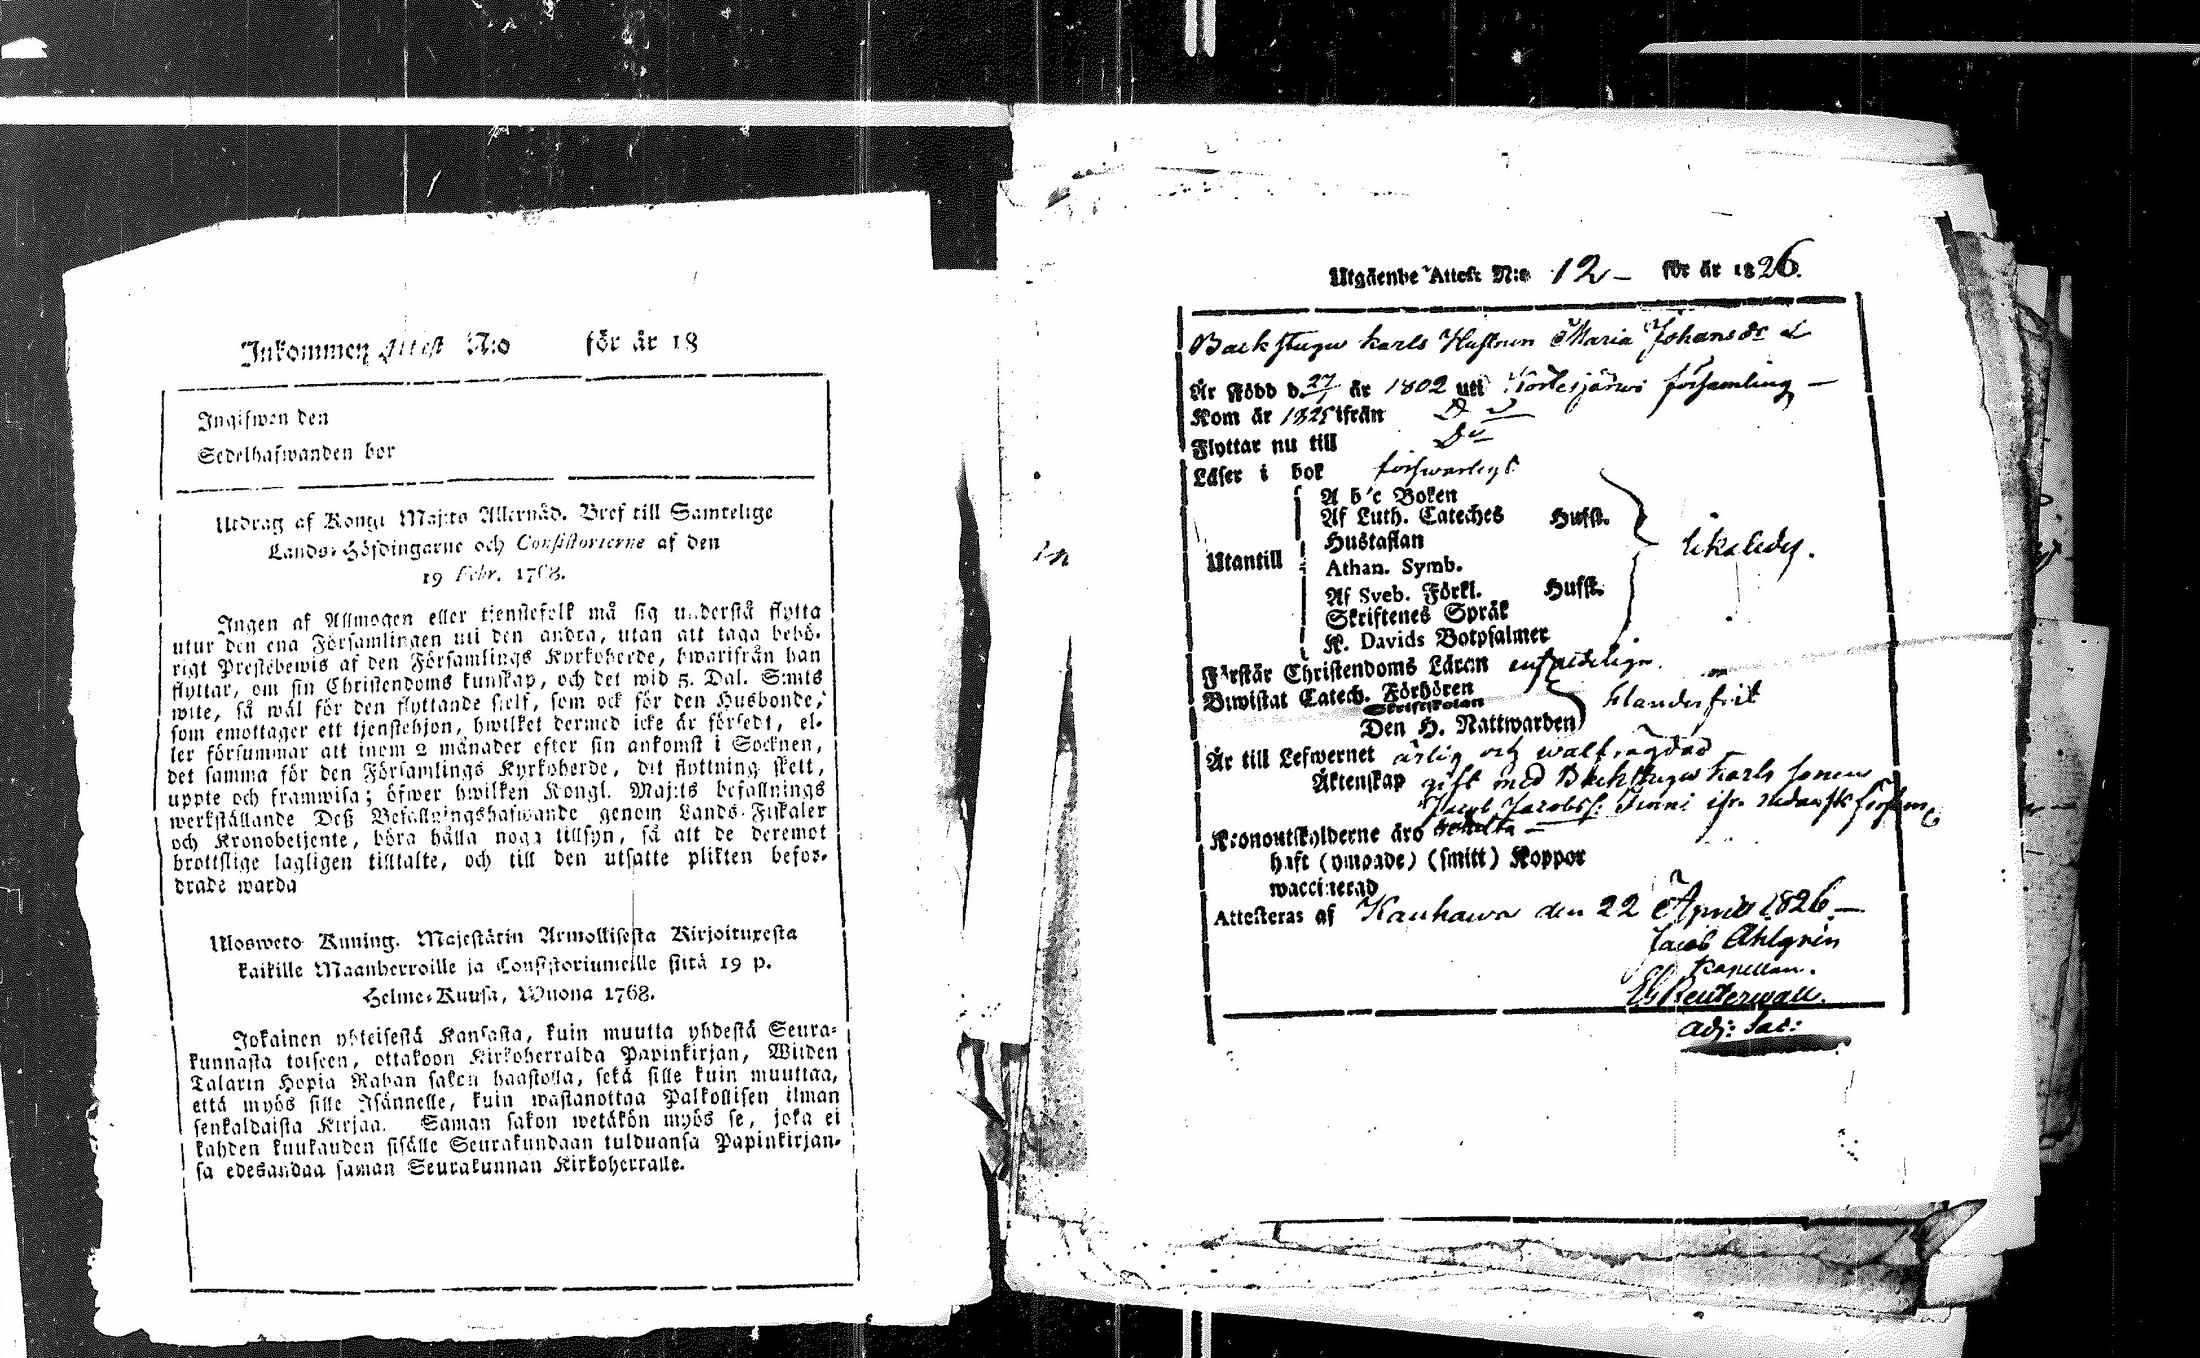 Inkommen Attest N:o för år 18
Ingifwen den
Sedelhafwanden bor
Utdrag af Kongl Maj:ts Allernåd. Bref till Samtelige
Lands-Höfdingarne och Consistorierne af den
19 Febr. 1768.
Ingen af Allmogen eller tjenstefolk må sig understå flytta
utur den ena Församlingen uti den andra, utan att taga behö-
rigt Prestebewis af den Församlings Kyrkoherde, hwarifrån han
flyttar, om sin Christendoms kunskap, och det wid 5. Dal. S:mts
wite, så wäl för den flyttande sielf, som ock för den Husbonde,
som emottager ett tjenstehjon, hwilket dermed icke är försedt, el-
ler försummar att inom 2 månader efter sin ankomst i Socknen,
det samma för den Församlings Kyrkoherde, dit flyttning skett,
uppte och framwisa; öfwer hwilken Kongl. Maj:ts befallnings
werkställande Deß Befallningshafwande genom Lands-Fiskaler
och Kronobetjente, böra hålla noga tillsyn, så att de deremot
brottslige lagligen tilltalte, och till den utsatte plikten befor-
drade warda
Ulosweto Kuning. Majestätin Armollisesta Kirjoituxesta
kaikille Maanherroille ja Consistoriumeille siitä 19 p.
Helme-Kuusa, Wuona 1768.
Jokainen yhteisestä Kansasta, kuin muutta yhdestä Seura-
kunnasta toiseen, ottakoon Kirkoherralda Papinkirjan, Wiiden
Talarin Hopia Rahan sakon haastolla, sekä sille kuin muuttaa,
että myös sille Isännelle, kuin wastanottaa Palkollisen ilman
senkaldaista Kirjaa. Saman sakon wetäkön myös se, joka ei
kahden kuukauden sisälle Seurakundaan tulduansa Papinkirjan-
sa edesandaa saman Seurakunnan Kirkoherralle.
Utgående Attest N:o 12 – för år 1826.
Backstugu karls Hustrun Maria Johansdr
Är Född d. 27/ år 1802 uti Kortesjärwi församling –
Kom år 1825 ifrån Do
Flyttar nu till Do
Läser i bok försvarligt
A b c Boken
Af Luth. Cateches Hufst.
Hustaflan
Utantill
Athan. Symb.
likaledes.
Af Sveb. Förkl. Hufst.
Skriftenes Språk
K. Davids Botpsalmer
Förstår Christendoms Läran enfaldeligen.
Biwistat Catech. Förhören
Skriftskolan
Den H. Nattwarden
klanderfrit
Är till Lefwernet ärlig och wälfrägdad
Äktenskap gift med Backstugu karls sonen
Jacob Jacobss:
Kronoutskylderne äro
haft (ympade) (smitt) Koppor
waccinerad
Attesteras af Kauhawa den 22 April 1826 –
Jacob Ahlgrén
Kapellan.
Reuterwall.
Adj: Sac: